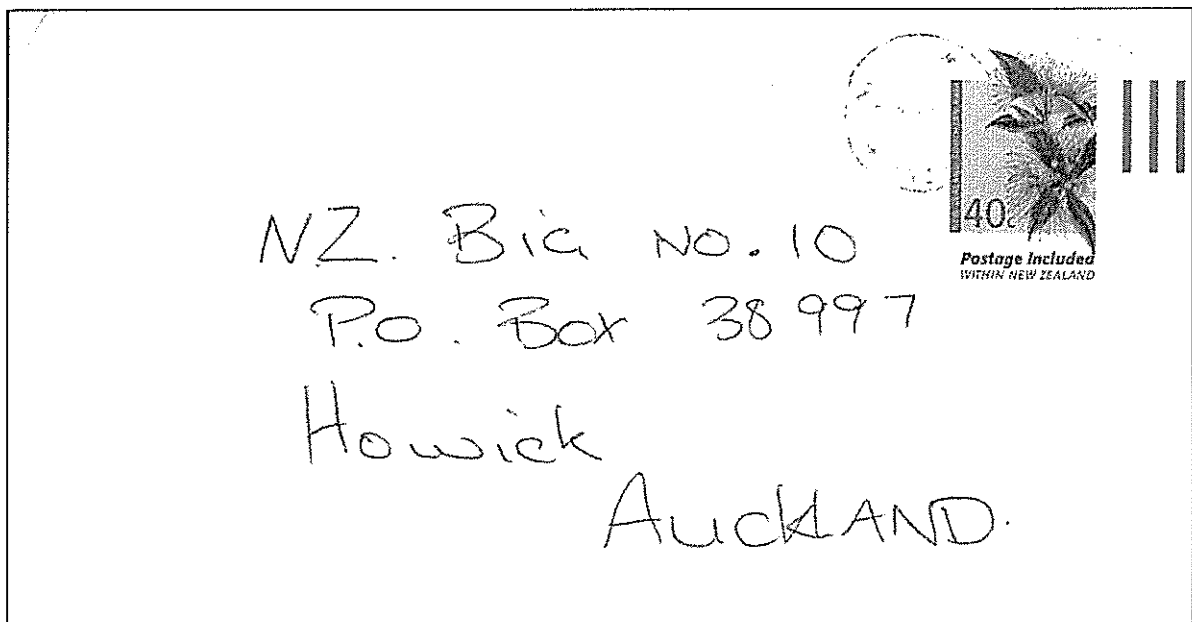 40c
Postage Included
WITHIN NEW ZEALAND
NZ. Big NO. 10
P.O. Box 38 997
Howick
AuckLAND.